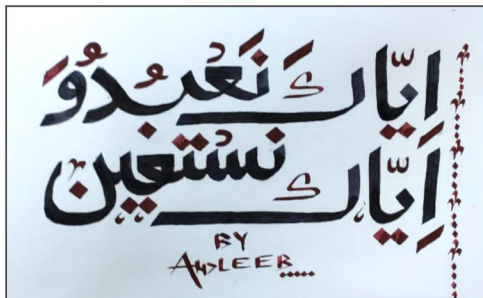 ایّاکَ نَعْبُدُ وَ
اِیّاکَ نَسْتَعِین
BY
ANDLEEB.....